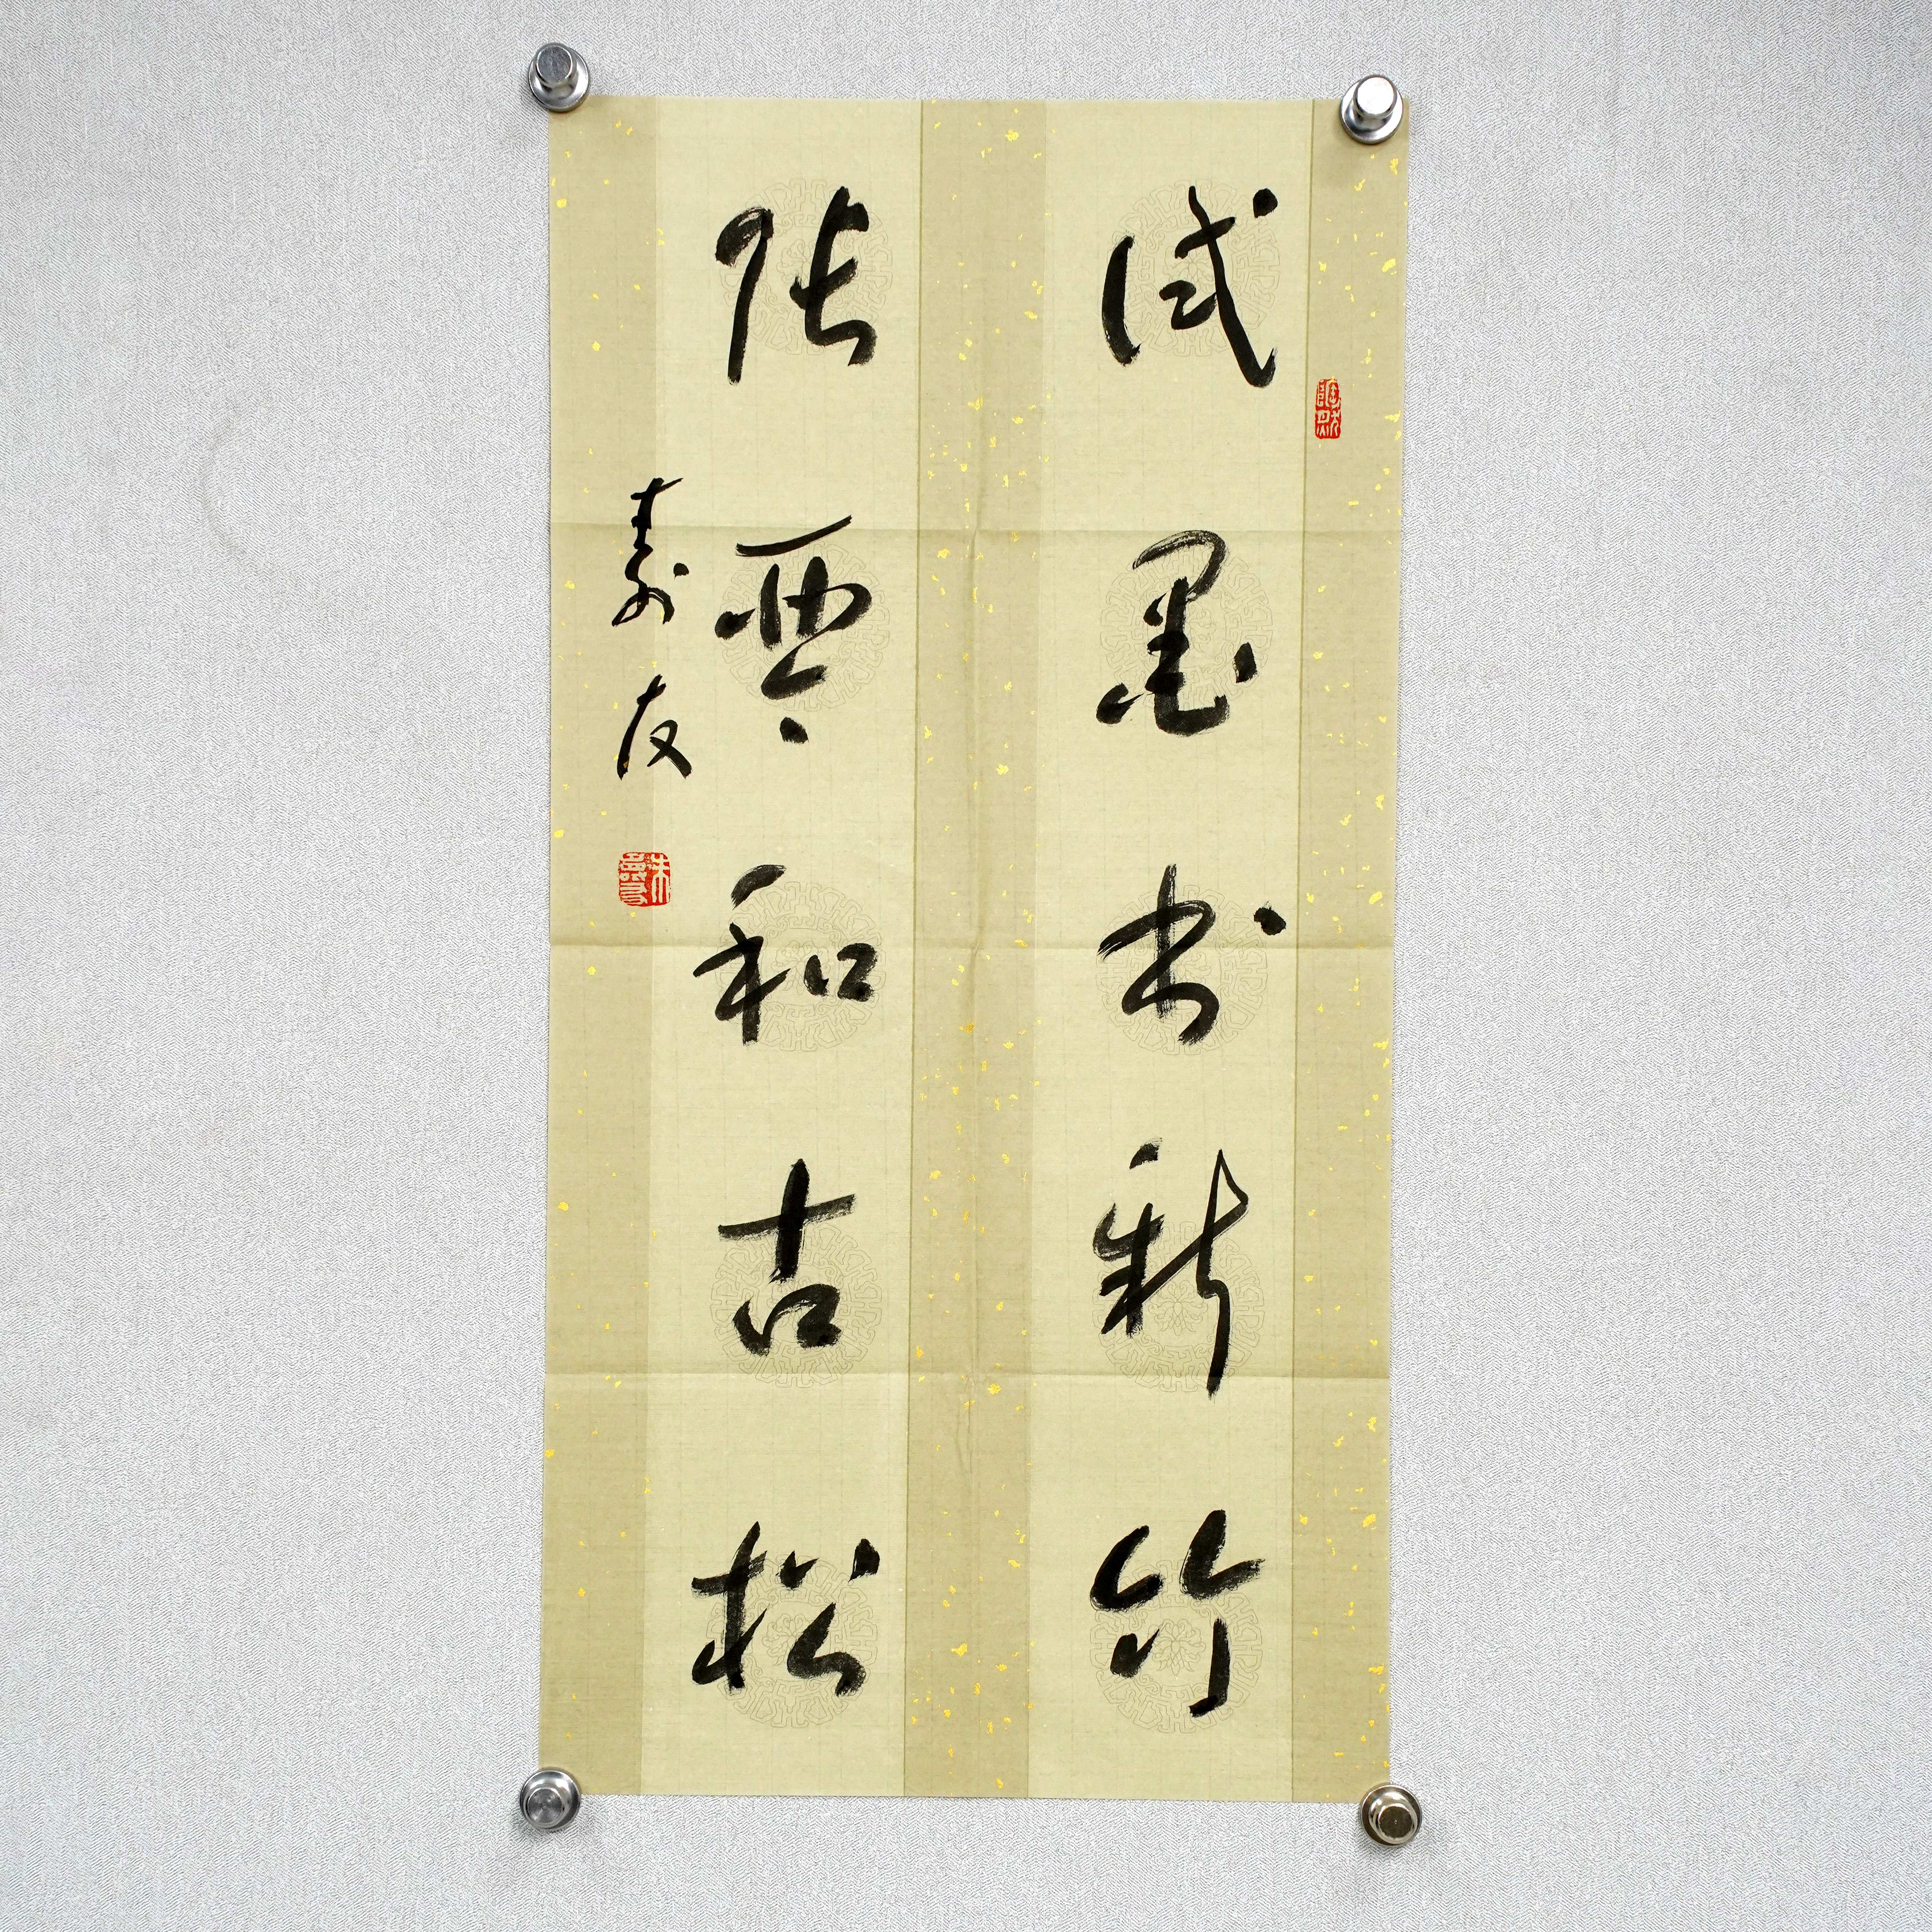 试墨书新竹
张琴和古松
寿友
朱寿友